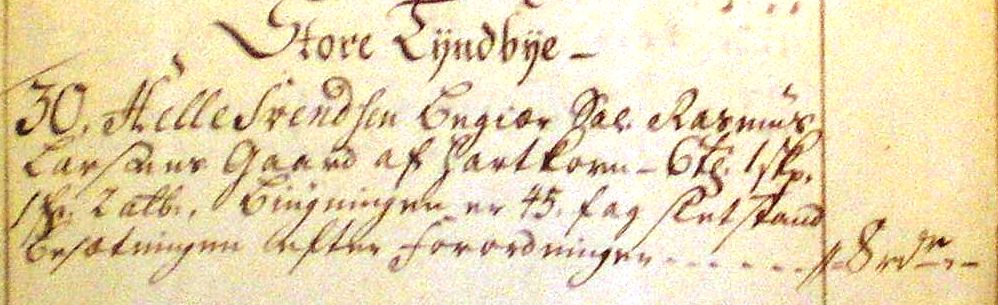 Store Tÿndbÿe -
30. Helle Svendsen begiær Sal. Rasmus
Larsens Gaard af Hartkorn - 6 td. 1 skp.
1 fr. 2 alb., Bÿgningen er 45. fag slet stand
besætningen efter forordningen - - - - - - 8 rdr. -